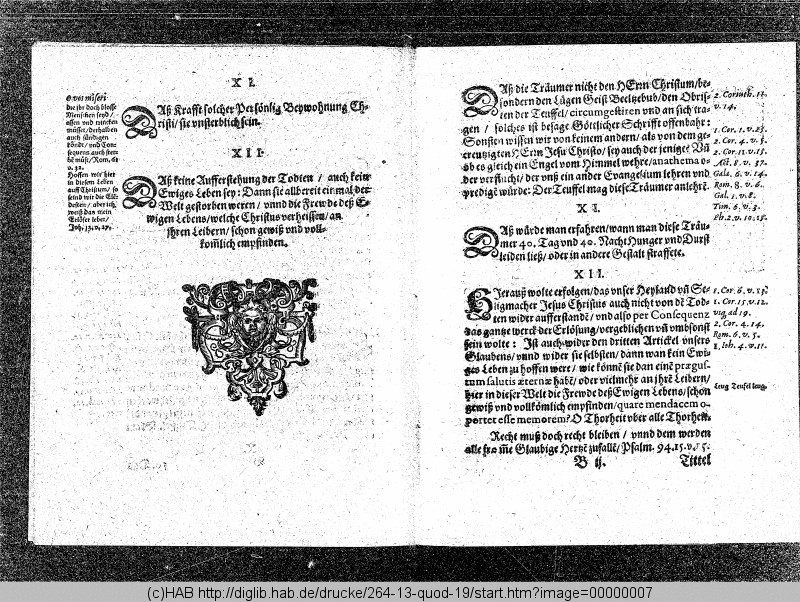 X I.
O ves miseri
die jhr doch blosse
Menschen seyd /
essen vnd trincken
müsset / derhalben
auch sündigen
köndt / vnd Con-
sequens auch sterb
v. 32.
Hoffen wir hier
in diesem Leben
auff Christum / so
seind wir die Elē-
desten / aber ich
weiß das mein
Erlöser lebet /
Joh. 13. v. 27.
DAß Krafft solcher Persönlig Beywohnung Chri-
risti / sie vnsterblich sein.
X I I.
DAß keine Aufferstehung der Todten / auch kein
Ewiges Leben sey: Dann sie allbereit einmal der
Welt gestorben weren / vnnd die Frewde deß E-
wigen Lebens / welche Christus verheissen / an
jhren Leibern / schon gewiß vnd voll-
kom̃lich empfinden.
DAß die Träumer nicht den HErrn Christum / be-
sondern den Lügen Geist Beelzebub / den Obris-
ten der Teuffel / circumgestiren vnd an sich tra-
gen / solches ist besage Göttlicher Schrifft offenbahr:
Sonsten wissen wir von keinem andern / als von dem ge-
creutzigten HErrn Jesu Christo / sey auch der jenige: Vñ
ob es gleich ein Engel vom Himmel wehre / anathema o-
der verflucht / der vnß ein ander Evangelium lehren vnd
predigē würde: Der Teuffel mag diese Träumer anlehrē.
2. Corinth. 11.
v. 14.
1. Cor. 1. v. 23.
2. Cor. 4. v. 5.
2. Cor. 11. v. 15.
Act. 8. v. 37.
Gala. 6. v. 14.
Rom. 8. v. 6.
Gal. 1. v. 8.
Tim. 6. v. 3.
Ph. 2. v. 10. 15.
X I.
DAß würde man erfahren / wann man diese Träu-
mer 40. Tag vnd 40. Nacht Hunger vnd Durst
leiden ließ / oder in andere Gestalt straffete.
X I I.
HIerauß wolte erfolgen / das vnser Heyland vñ Se-
ligmacher Jesus Christus auch nicht von dē Tod-
ten wider aufferstandē / vnd also per Consequenz
das gantze werck der Erlösung / vergeblichen vñ vmbsonst
sein wolte: Ist auch wider den dritten Artickel vnsers
Glaubens / vnnd wider sie selbsten / dann wan kein Ewi-
ges Leben zu hoffen were / wie könnē sie dan einē prægus-
tum salutis æternæ habē / oder vielmehr an jhrē Leibern /
hier in dieser Welt die Frewde deß Ewigen Lebens / schon
gewiß vnd vollkom̃lich empfinden / quare mendacem o-
portet esse memorem? O Thorheit vber alle Thorheit.
1. Cor. 6. v. 15.
1. Cor. 15. v. 12.
vsq ad 19.
2. Cor. 4. 14.
Rom. 6. v. 5.
1. Ioh. 4. v. 11.
Leug Teufel leug.
Recht muß doch recht bleiben / vnnd dem werden
alle from̃e Glaubige Hertzē zufallē / Psalm. 94. 15. v. 5.
B ij. Tittel
(c)HAB http://diglib.hab.de/drucke/264-13-quod-19/start.htm?image=00000007